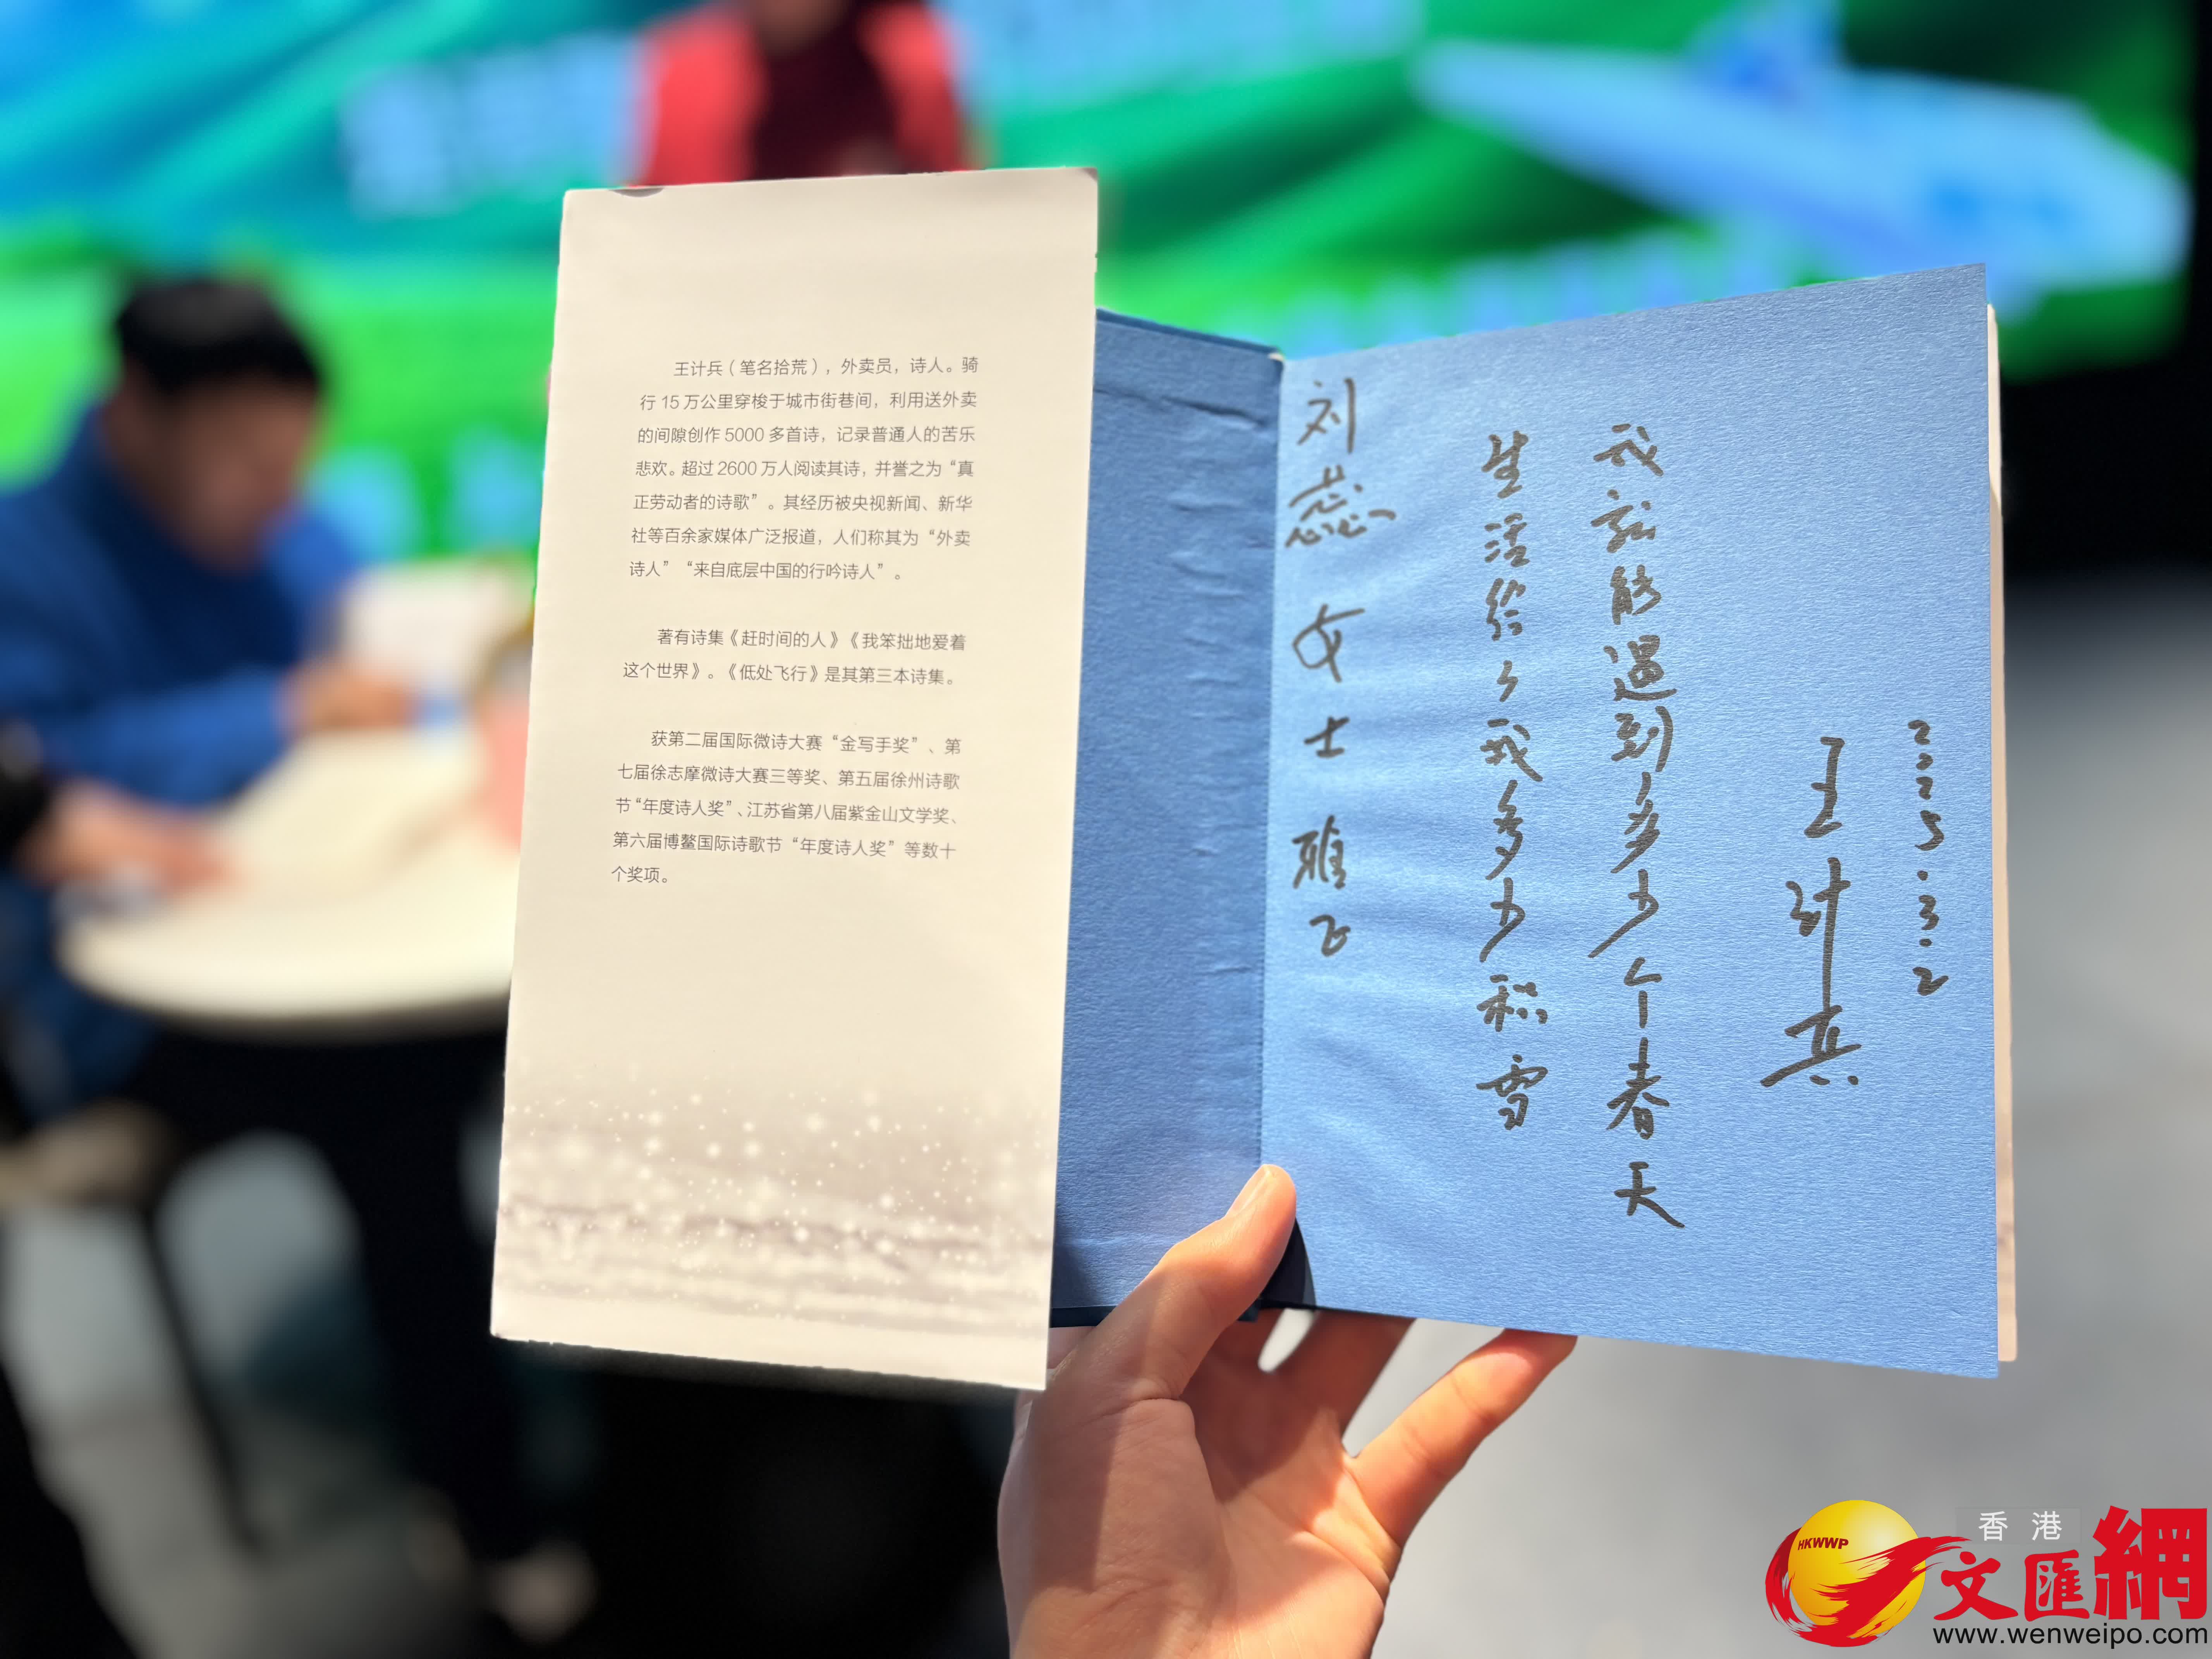 王计兵（笔名拾荒），外卖员，诗人。骑
行 15 万公里穿梭于城市街巷间，利用送外卖
的间隙创作 5000 多首诗，记录普通人的苦乐
悲欢。超过 2600 万人阅读其诗，并誉之为“真
正劳动者的诗歌”。其经历被央视新闻、新华
社等百余家媒体广泛报道，人们称其为“外卖
诗人”“来自底层中国的行吟诗人”。
著有诗集《赶时间的人》《我笨拙地爱着
这个世界》。《低处飞行》是其第三本诗集。
获第二届国际微诗大赛“金写手奖”、第
七届徐志摩微诗大赛三等奖、第五届徐州诗歌
节“年度诗人奖”、江苏省第八届紫金山文学奖、
第六届博鳌国际诗歌节“年度诗人奖”等数十
个奖项。
刘蕊女士雅正
生活给了我多少积雪
我就能遇到多少个春天
王计兵
2025.3.2
HKWWP
香港
文匯網
www.wenweipo.com